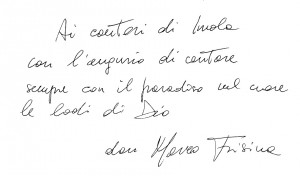 Ai cantori di Imola
con l'augurio di cantare
sempre con il paradiso nel cuore
le lodi di Dio
don Marco Frisina